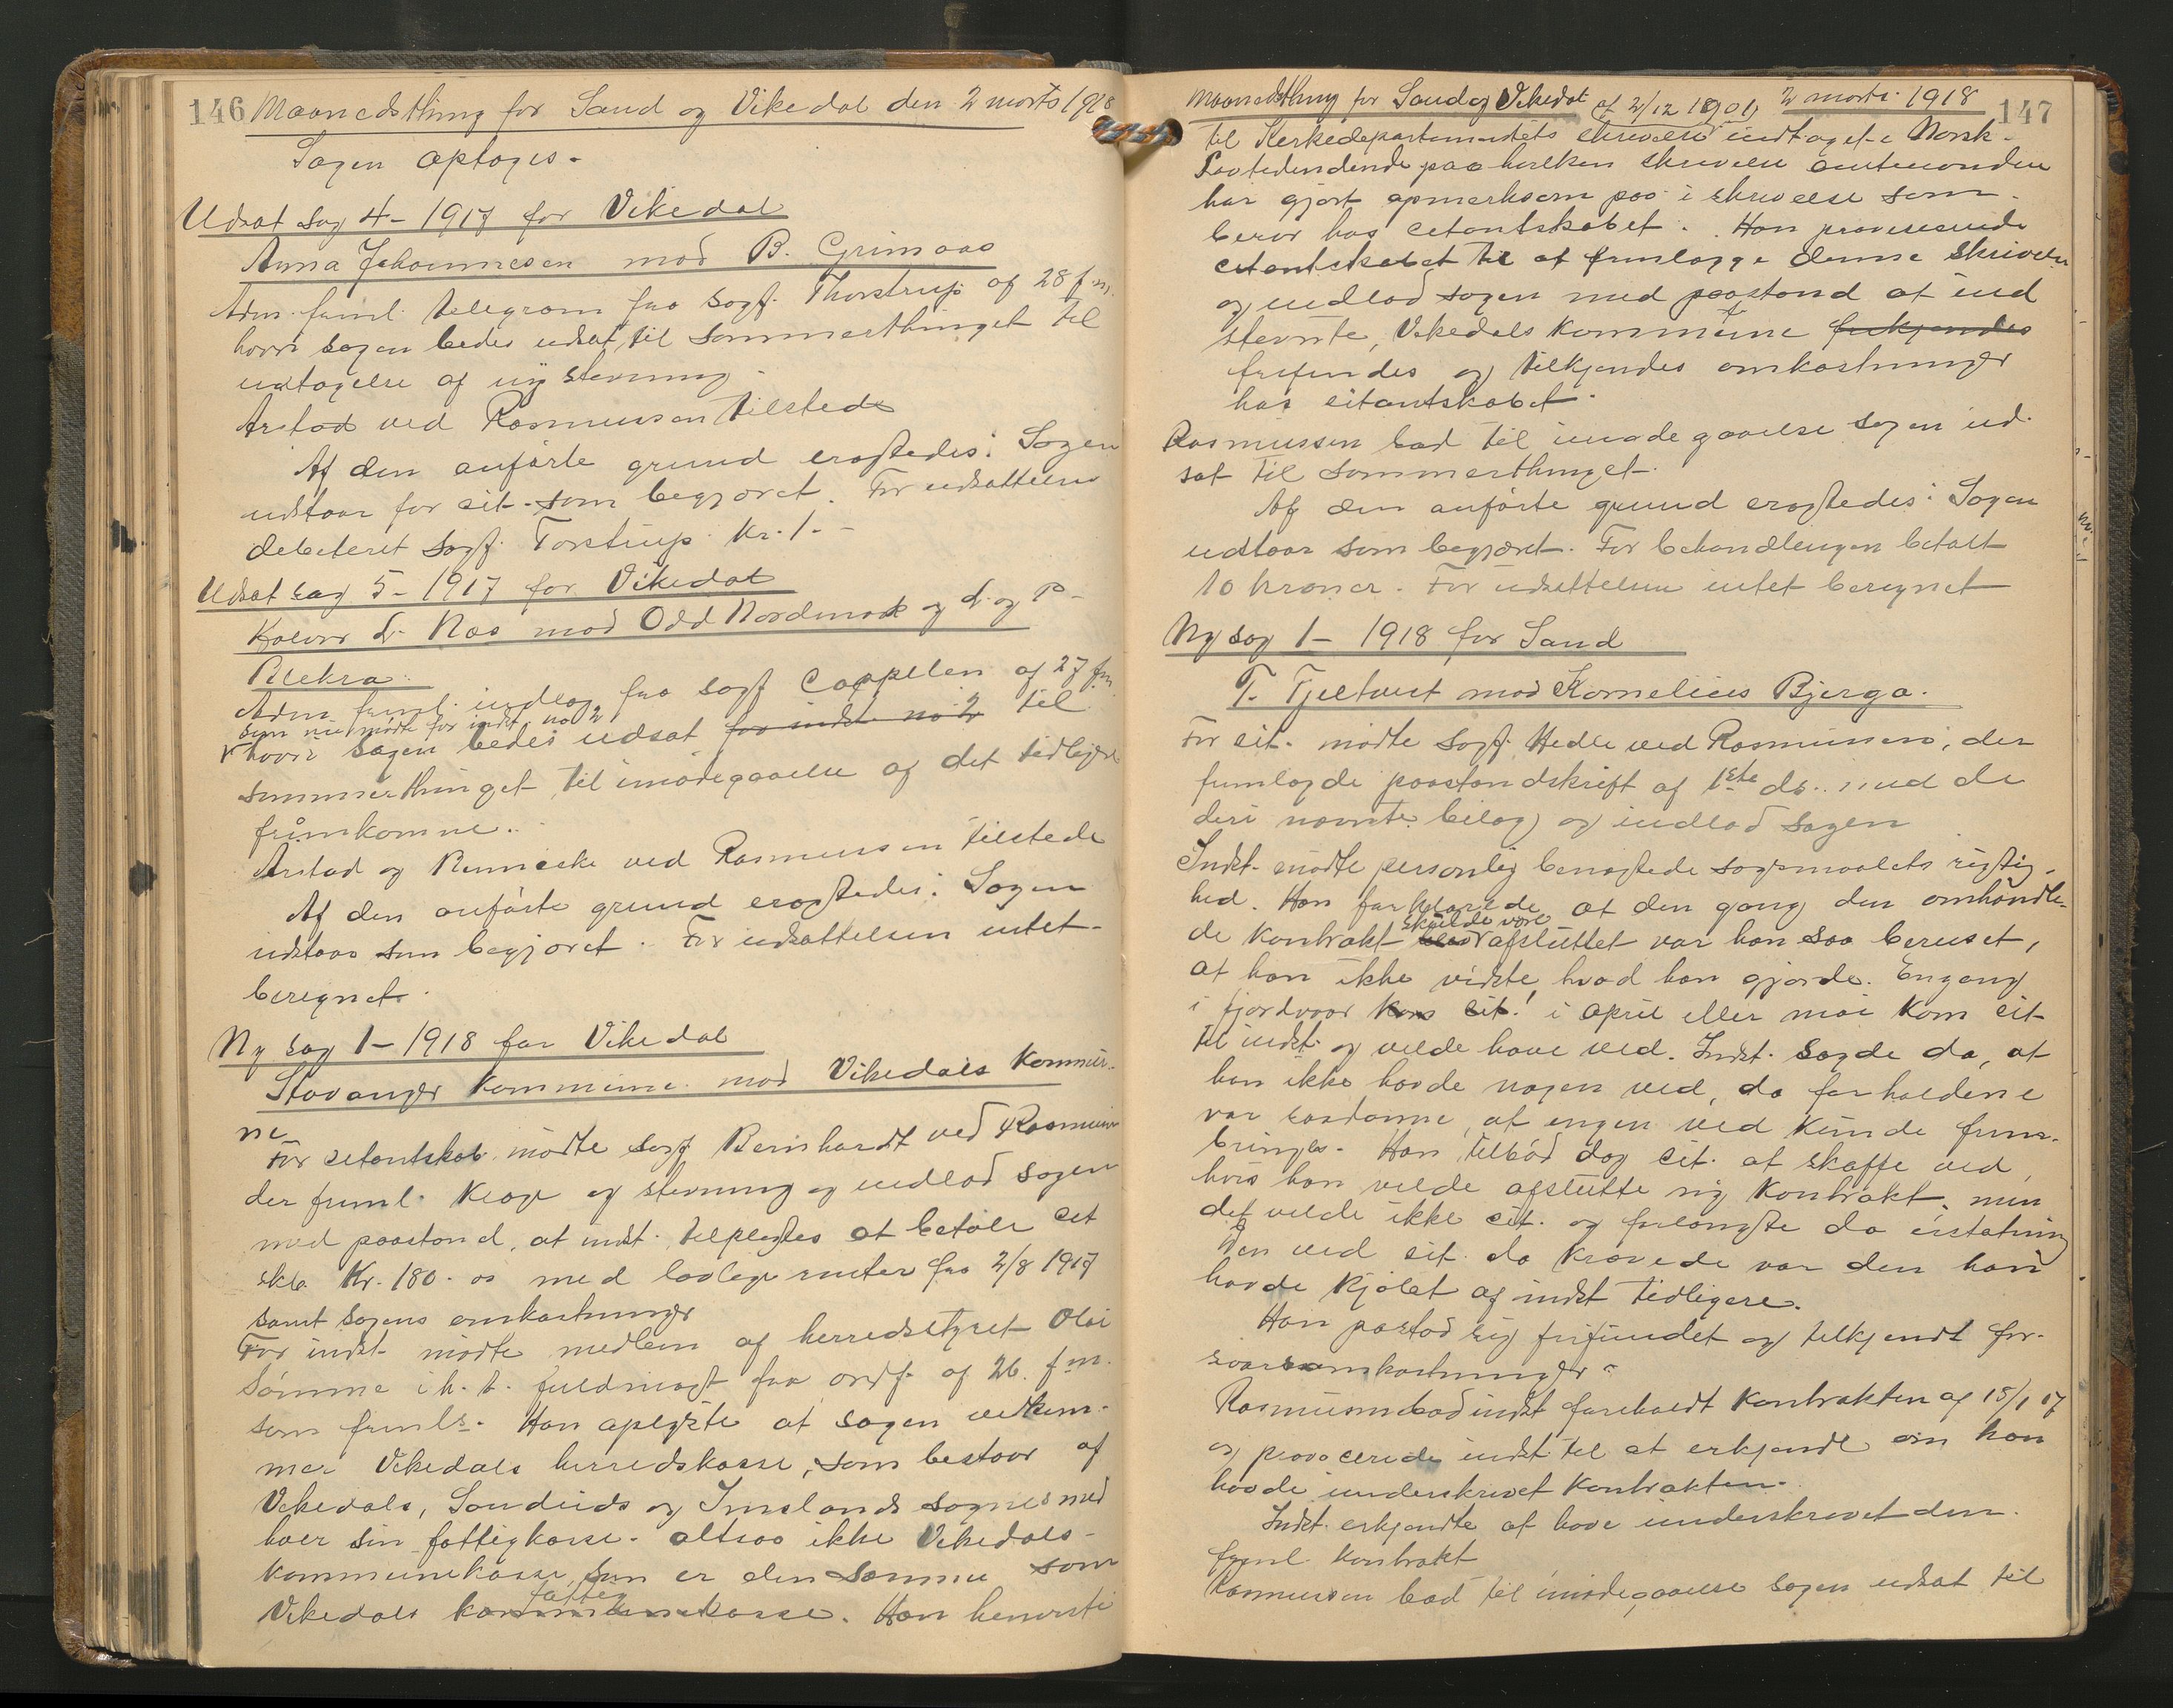 146 Maanedsthing for Sand og Vikedal den 2 marts 1918
Sagen optages.
Udsat sag 4 - 1917 for Vikedal
Anna Johannesen mod B. Grimaas
Adm. freml. telegram fra sagf. Thorstrup af 28 f.m.
hvori sagen bedes udsat til sommerthinget til
udtagelse af ny stevning.
Arstad ved Rasmussen tilstede
Af den anførte grund eragtedes: Sagen
udstaar for cit. som begjæret. For udsættelsen
debiteret sagf. Torstrup Kr. 1.-
Udsat sag 5 - 1917 for Vikedal
L. Næs mod Odd Nordmark og L. og P.
Blekra.
Adm. freml. indlæg fra sagf Cappelen af 27 f.m.
som nu mødte for indst. no 2
hvori sagen bedes udsat for indst. no 2 til
sommerthinget til imødegaaelse af det tidligere
fremkomne.
Arstad og Rumeske ved Rasmussen tilstede
Af den anførte grund eragtedes: Sagen
udstaar som begjæret. For udsættelsen intet
beregnet.
Ny sag 1 - 1918 for Vikedal
Stavanger kommune mod Vikedals kommu-
ne
For citantskab. mødte sagf Bernhardt ved Rasmussen
der freml. klage og stevning og indlod sagen
med paastand, at indst. tilpligtes at betale cit
skb. Kr. 180.00 med lovlige renter fra 2/8 1917
samt sagens omkostninger
For indst. mødte medlem af herredstyret Olai
Sømme i h. t. fuldmagt fra ordf. af 26. f.m.
som fremls. Han oplyste at sagen vedkom-
mer Vikedals herredskasse, som bestaar af
Vikedals, Sandeids og Imslands sogne med
hver sin fattigkasse - altsaa ikke Vikedals
kommunekasse, som er den samme som
fattig
Vikedals kommunekasse. Han henviste
Maanedsthing for Sand og Vikedal 2 marts 1918 147
af 2/12 1901
til Kirkedepartementets skrivelse indtaget i Norsk
Lovtidendende paa hvilken skrivelse amtmanden
har gjort opmerksom paa i skrivelse som
beror hos citantskabet. Han provoserede
citantskabet til at fremlægge denne skrivelse
og indlod sagen med paastand at ind
stevnte, Vikedals kommune frikjendes
frifindes og tilkjendes omkostninger
hos citantskabet.
Rasmussen bad til imødegaaelse sagen ud-
sat til sommerthinget.
Af den anførte grund eragtedes: Sagen
udstaar som begjæret. For behandlingen betalt
10 kroner. For udsættelsen intet beregnet
Ny sag 1 - 1918 for Sand
T. Tjeltveit mod Kornelius Bjerga.
For cit. mødte sagf. Hedle ved Rasmussen, der
fremlagde paastandskrift af 1ste ds. med de
deri nævnte bilag og indlod sagen
Indst. mødte personlig benegtede søgsmaalets rigtig-
hed. Han forklarede at den gang den omhandle-
skulde være
de kontrakt blev afsluttet var han saa beruset,
at han ikke vidste, hvad han gjorde. Engang
i fjordvaar kom cit. i april eller mai kom cit
til indst. og vilde have ved. Indst. sagde da, at
han ikke havde nogen ved, da forholdene
var saadanne, at ingen ved kunde frem-
bringes. Han tilbød dog cit. at skaffe ved,
hvis han vilde afslutte ny kontrakt, men
det vilde ikke cit. og forlangte da erstatning
Den ved cit. da krævede var den han
havde kjøbt af indst tidligere.
Han paastod sig frifundet og tilkjendt for-
svarsomkostninger.
Rasmussen bad indst foreholdt kontrakten af 15/1 17
og provocerede indst til at erkjende om han
havde underskrevet kontrakten.
Indst. erkjendte at have underskrevet den
freml kontrakt
Rasmussen bad til imødegaaelse sagen udsat til